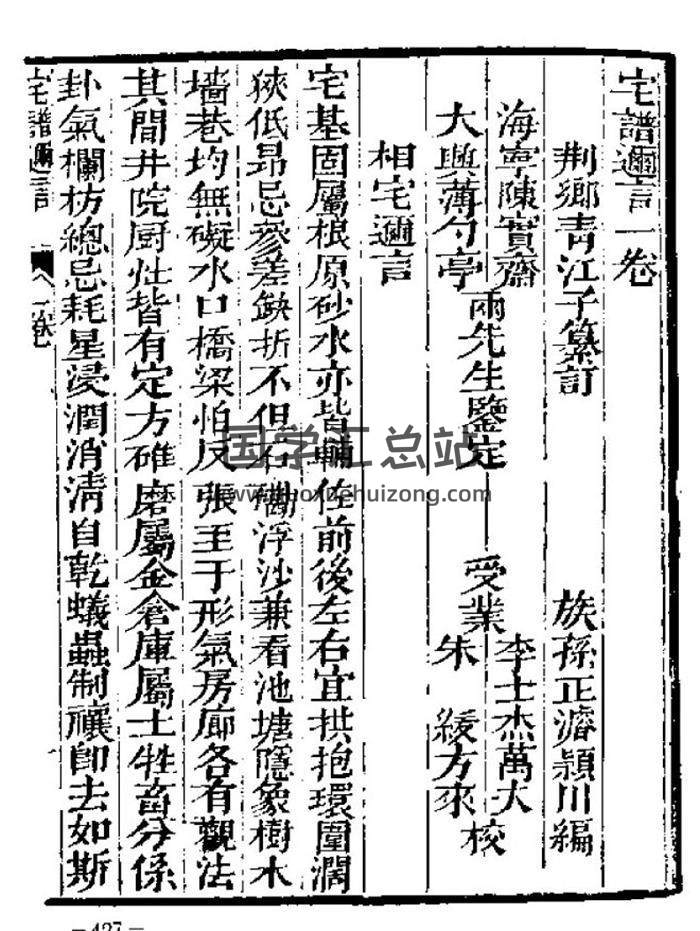 宅譜邇言一卷
荆鄉青江子纂訂 族孫正濬頴川編
海寧陳實齋
大興薄勺亭
兩先生鑒定 受業
李士杰萬大
朱 緩方來
校
相宅邇言
宅基固屬根原砂水亦皆輔佐前後左右宜拱抱環圍濶
狹低昻忌參差缺折不但石磡浮沙兼看池塘隱象樹木
墻巷均無礙水口橋梁怕反張至于形氣房廊各有觀法
其間井院厨灶皆有定方碓磨屬金倉庫屬土牲畜分係
卦氣欄枋總忌耗星浸潤消淸自乾蟻蟲制禳卽去如斯
宅譜邇言 一卷
国学汇总站
www.guoxuehuizong.com
－427－